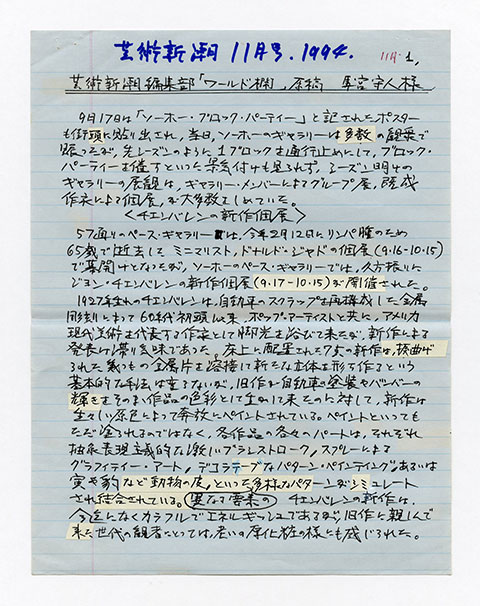 芸術新潮 11月号. 1994.
11月 1,
芸術新潮編集部「ワールド欄」原稿 様
9月17日は「ソーホー・ブロック・パーティー」と記されたポスター
も街頭に貼り出され、当日、ソーホーのギャラリーは多数の観衆で
賑ったが、先シーズンのように1ブロックを通行止めにして、ブロック・
パーティーを催すといった景気付けも見られず、シーズン明けの
ギャラリーの展観は、ギャラリー・メンバーによるグループ展、既成
作家による個展、が大多数をしめていた。
<チェンバレンの新作個展>
57通りのペース・ギャラリーは、今年2月12日にリンパ腫のため
65歳で逝去した ミニマリスト、ドナルド・ジャドの個展(9.16-10.15)
で幕開けとなったが、ソーホーのペース・ギャラリーでは、久方振りに
ジョン・チェンバレンの新作個展(9.17-10.15)が開催された。
1927年生れのチェンバレンは、自動車のスクラップを再構成した金属
彫刻によって60年代初頭以来、ポップ・アーティストと共に、アメリカ
現代美術を代表する作家として脚光を浴びて来たが、新作による
発表は滞り気味であった。床上に配置された7点の新作は、折曲げ
られた幾つもの金属片を溶接して新たな立体を形ち作るという
基本的な手法は変らないが、旧作が自動車の塗装やバンパーの
輝きをそのまま作品の色彩として生かして来たのに対して、新作は
生々しい原色によって奔放にペイントされている。ペイントといっても
ただ塗られるのではなく、各作品の各々のパートは、それぞれ
抽象表現主義的な激しいブラシストローク、スプレーによる
グラフィティー・アート、デコラテーブなパターン・ペインティング、あるいは
寅や豹など動物の皮、といった多様なパターンがシミュレート
され結合されている。異なる要素の チェンバレンの新作は、
今迄になくカラフルでエネルギッシュであるが、旧作に親しんで
来た世代の観者にとっては、老いの厚化粧の様にも感じられた。